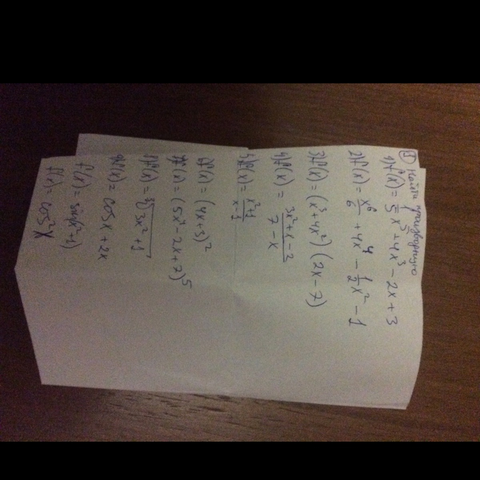 ① Найти производную
1) f(x) = 1/5 x^5 + 4x^3 - 2x + 3
2) f(x) = x^6/6 + 4x^4 - 1/2 x^2 - 1
3) f(x) = (x^3 + 4x^2)(2x - 7)
4) f(x) = (3x^2 + x - 2)/(7 - x)
5) f(x) = (x^2 + 1)/(x - 1)
6) f(x) = (4x + 3)^2
7) f(x) = (5x^4 - 2x + 7)^5
8) f(x) = √(3x^2 + 1)
9) f(x) = cos x + 2x
f(x) = cos^2 x